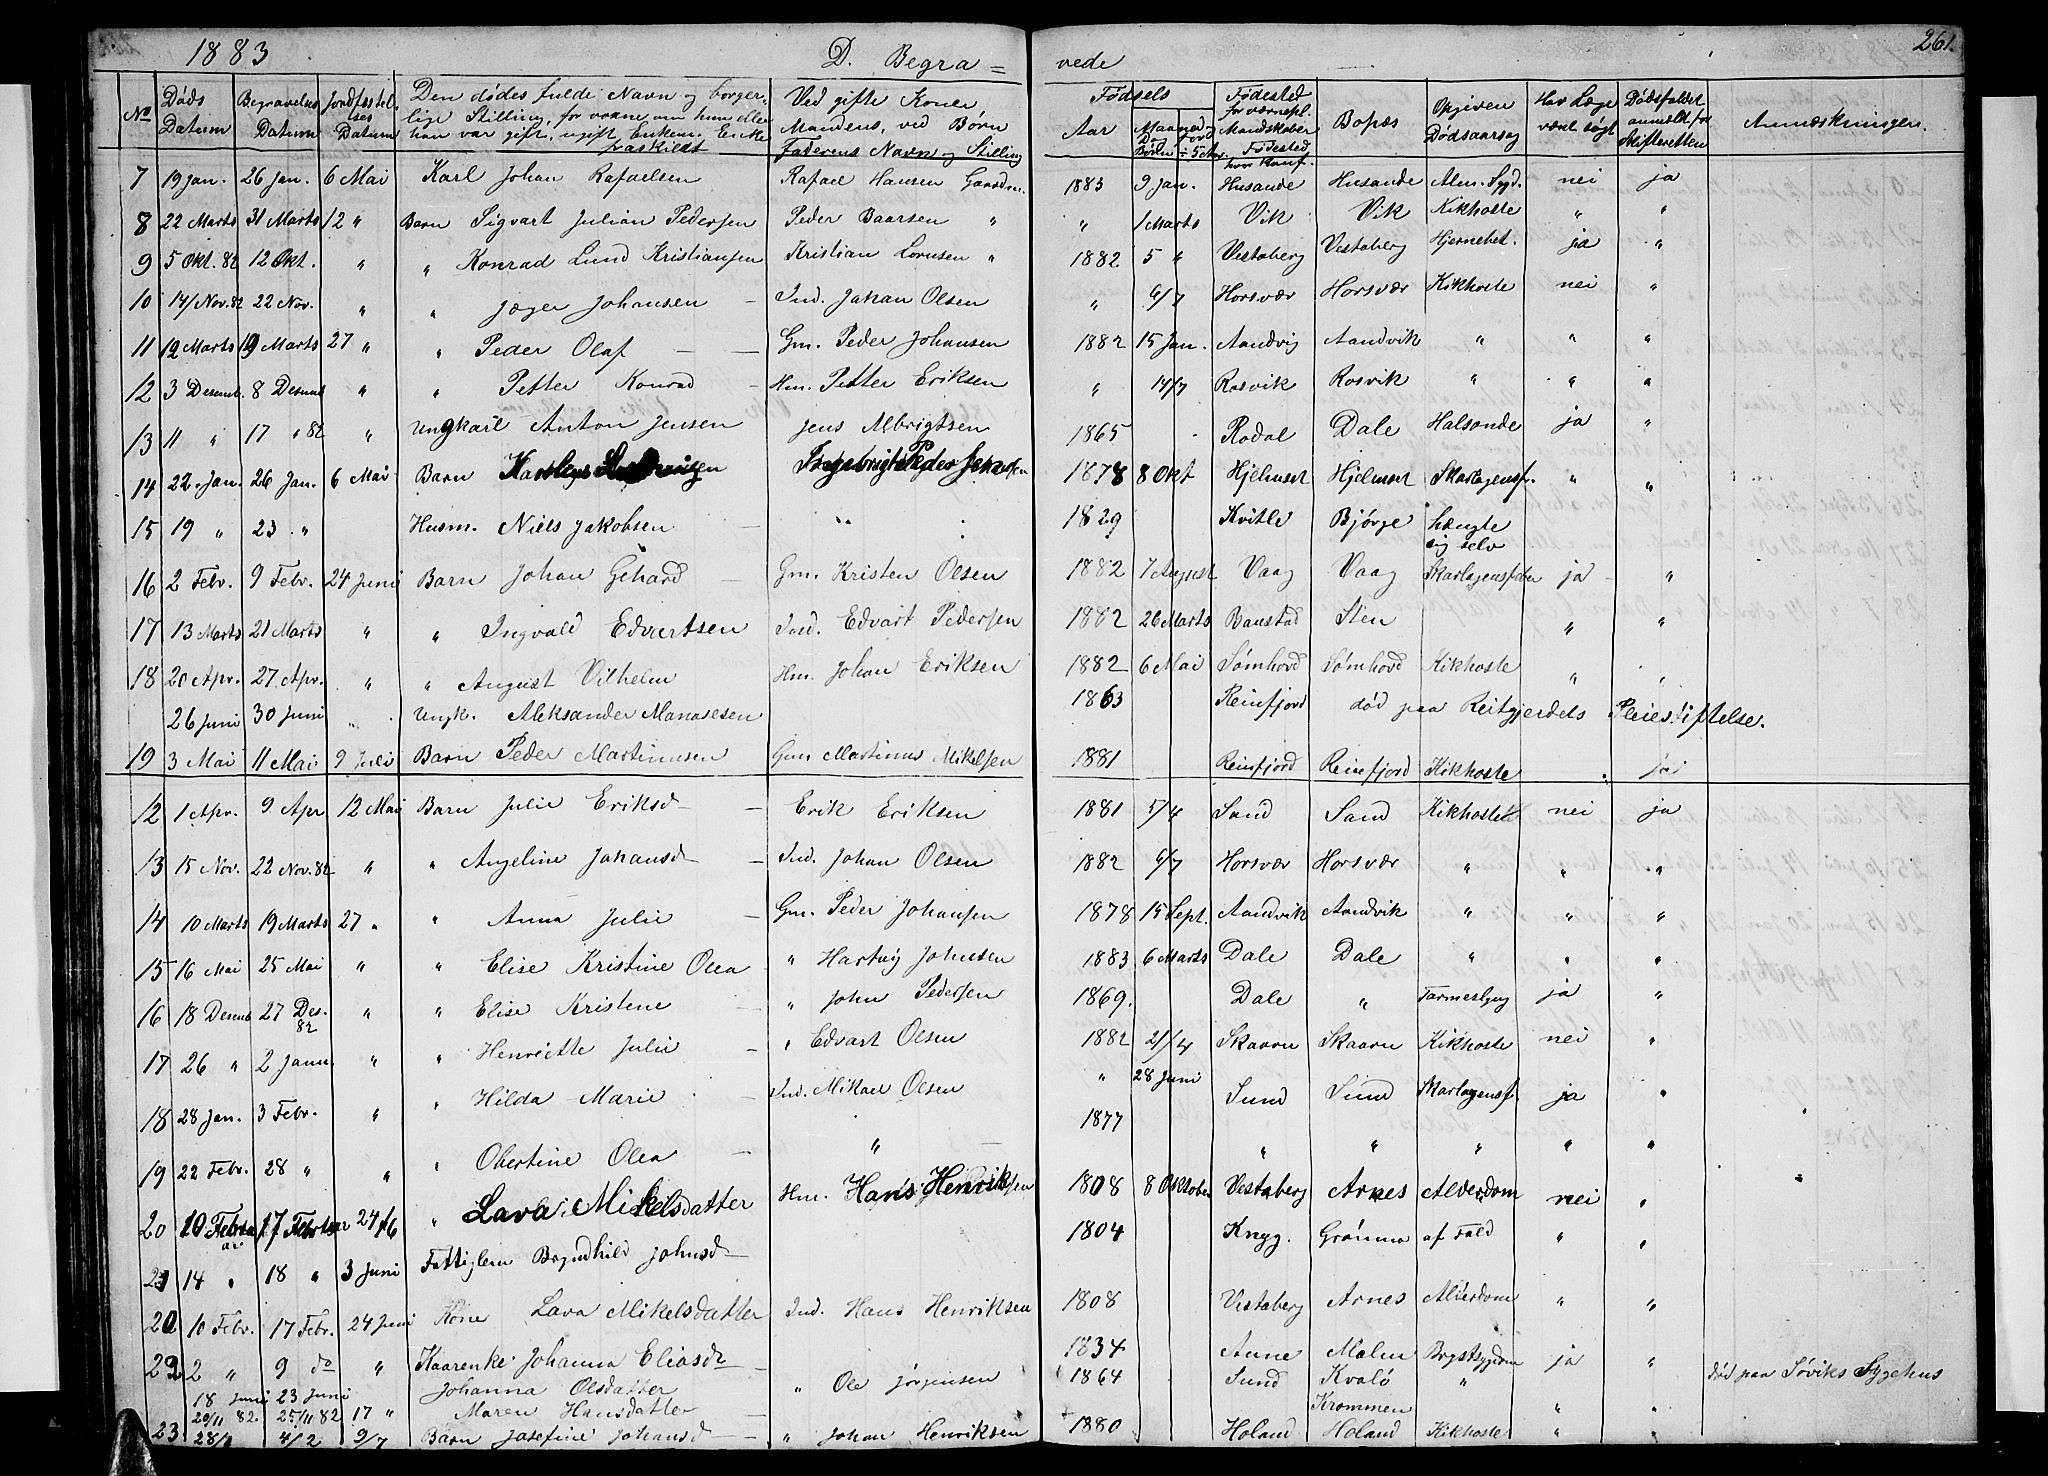 1883 D. Begra = vede 261.
No Døds Datum Begravelses Datum Jordfæstelses Datum Den dødes fulde Navn og borgerlige Stilling, for voxne, om hun eller han var gift, ugift, Enkem. Enke fraskildt Ved gifte Koner, Mandens, ved Børn Faderens Navn og Stilling Fødsels Aar Fødested for værnepl. Mandskaber Fødested Bopæs Opgiven Dødsaarsag Har Læge været søgt Dødsfaldet anmeldt for Skifteretten Anmærkninger.
7 19 Jan. 26 Jan. 6 Mai Karl Johan Rafaelsen Rafael Hansen Gaardm. 1883 9 Jan. Husande Husande Alm. Sygd. nei ja
8 22 Marts 31 Marts 12 " Barn Sigvart Julian Pedersen Peder Baarsen " " 1 Marts Vik Vik Kikhoste " "
9 5 Okt. 82 12 Okt. " " Konrad Lund Kristiansen Kristian Lornsen " 1882 5 " Vestaberg Vestaberg Hjernebet. ja "
10 14/Nov. 82 22 Nov. " " Jæger Johansen — Ind. Johan Olsen " 6/7 Horsvær Horsvær Kikhoste nei "
11 12 Marts 19 Marts 27 " " Peder Olaf — — Gm. Peder Johansen 1882 15 Jan. Aandvig Aandvik " " "
12 3 Desemb. 8 Desemb " " Petter Konrad — Hm. Petter Eriksen " 14/7 Rosvik Rosvik " " "
13 11 " 17 " 82 " Ungkarl Anton Jensen Jens Albrigtsen 1865 Rodal Dale Halsonde ja "
14 22 Jan. 26 Jan. 6 Mai Barn Ingebrigt Peder Johansen 1878 8 Okt Hjelmset Hjelmset Skarlagensf. " "
15 19 " 23 " Husm. Niels Jakobsen — " 1829 Kvitle Bjørge hængte sig selv
16 2 Febr. 9 Febr. 24 Juni Barn Johan Gehard Gm. Kristen Olsen 1882 7 August Vaag Vaag Skarlagensfeber ja "
17 13 Marts 21 Marts " " Ingvald Edvertsen Ind. Edvart Pedersen 1882 26 Marts Baustad Sten " "
18 20 Apr. 27 Apr. " " August Vilhelm Hm. Johan Eriksen 1882 6 Mai Sømhovd Sømhovd Kikhoste " "
26 Juni 30 Juni " Ungk. Aleksander Manasesen 1863 Reinfjord død paa Reitgjerdets Pleiestiftelse.
19 3 Mai 11 Mai 9 Juli Barn Peder Martinusen Gm. Martinus Mikelsen 1881 Reinfjord Reinfjord Kikhoste ja
12 1 Apr. 9 Apr 12 Mai Barn Julie Eriksd — Erik Eriksen 1881 5/4 Sand Sand Kikhoste nei ja
13 15 Nov. 22 Nov. 82 " " Angeline Johansd — Ind. Johan Olsen 1882 6/7 Horsvær Horsvær " " "
14 10 Marts 19 Marts 27 " " Anna Julie — Gm. Peder Johansen 1878 15 Sept. Aandvik Aandvik " " "
15 16 Mai 25 Mai " " Elise Kristine Olea " Hartvig Johnsen 1883 6 Marts Dale Dale " " "
16 18 Desemb 27 Des. 82 " " Elise Kristene " John Pedersen 1869. Dale " Tarmeslyng ja "
17 26 " 2 Janu. " " Henriette Julie — " Edvart Olsen 1882 21/4 Skaarn Skaarn Kikhoste nei "
18 28 Jan. 3 Febr. " " Hilda Marie Ind. Mikael Olsen " 28 Juni Sund Sund Skarlagensf. ja "
19 22 Febr. 28 " " " Obertine Olea — " 1877 " " " " "
20 10 Februari 17 Februar 24/6 " Lava Mikelsdatter Hm. Hans Henriksen 1808 8 Oktober Vestaberg Arnes Alderdom nei "
21 14 " 18 " 3 Juni Fattiglem Bryndhild Johnsd — 1804 Knyg. Grønmo af Fald " "
20 10 Febr. 17 Febr. 24 Juni Kone Lava Mikelsdatter Ind. Hans Henriksen 1808 Vestaberg Arnes Alderdom " "
22 2 " 9 do " Kaarenke Johanna Eliasdr — 1834 Aune Malm Brystsygdom ja "
18 Juni 23 Juni Johanna Olsdatter " Ole Jørgensen 1864 Sund Kvalø " død paa Søviks Sygehus
20/11 82. 25/11 82 17 " Maren Hansdatter — Krommen " "
23 28/1 4/2 9/7 Barn Josefine Johansd — " Johan Henriksen 1880 Holand Holand Kikhoste "